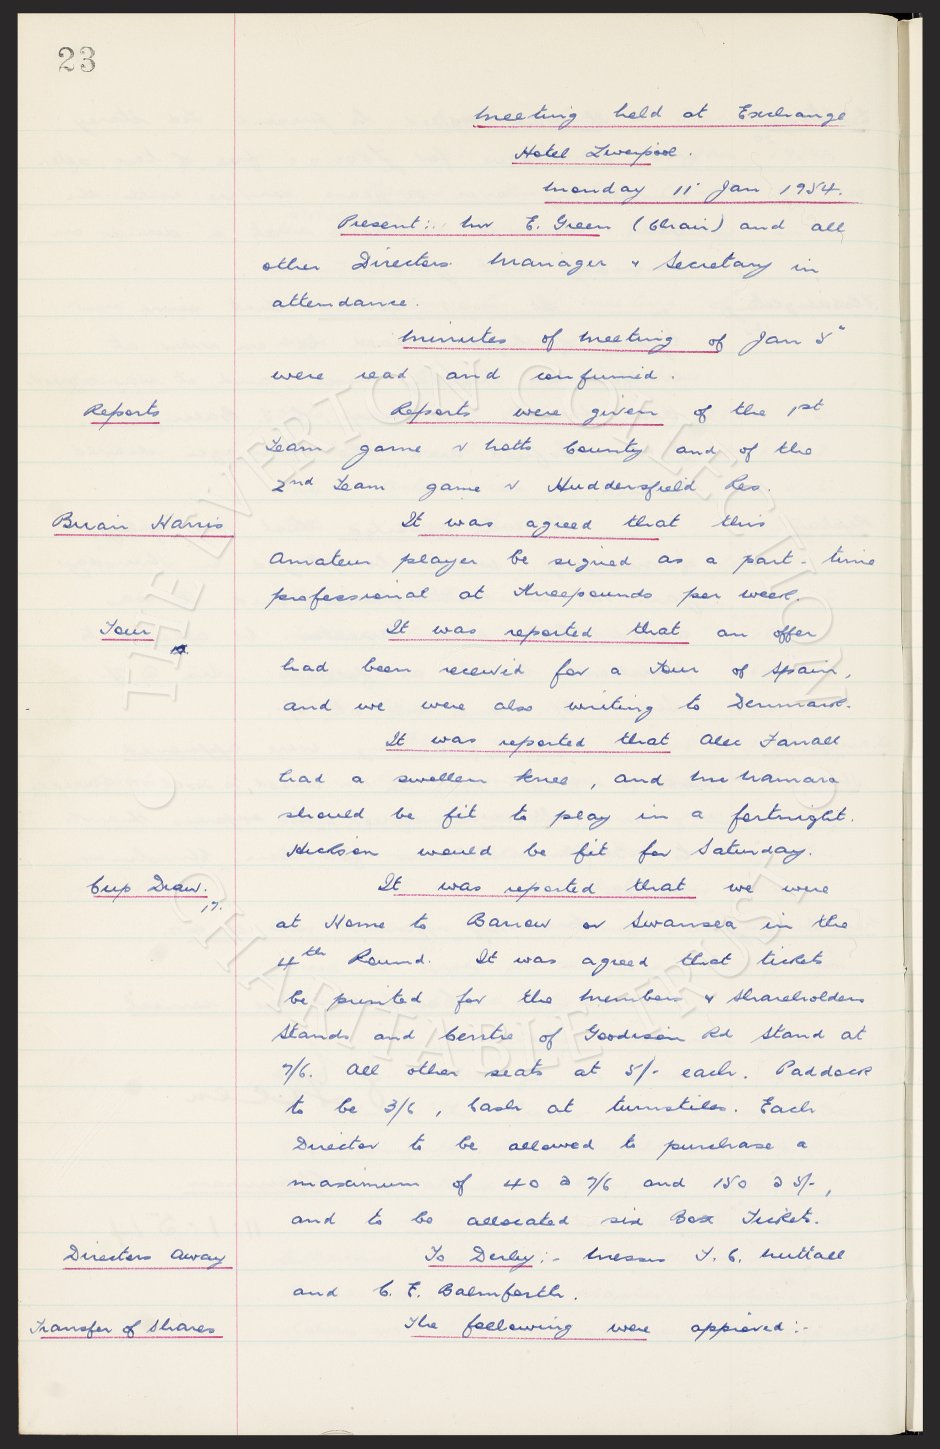 23
Meeting held at Exchange
Hotel Liverpool.
Monday 11" Jan 1954.
Present:- Mr E. Green (Chair) and all
other Directors. Manager & Secretary in
attendance.
Minutes of Meeting of Jan 5"
were read and confirmed.
Reports
Reports were given of the 1st
Team game v Notts County and of the
2nd Team game v Huddersfield Res.
Brian Harris
It was agreed that this
Amateur player be signed as a part-time
professional at Threepounds per week.
Tour
It was reported that an offer
had been received for a Tour of Spain,
and we were also writing to Denmark.
It was reported that Alec Farrall
had a swollen knee, and McNamara
should be fit to play in a fortnight.
Hickson would be fit for Saturday.
Cup Draw.
17.
It was reported that we were
at Home to Barrow or Swansea in the
4th Round. It was agreed that tickets
be printed for the Members & Shareholders
Stands and Centre of Goodison Rd Stand at
7/6. All other seats at 5/- each. Paddock
to be 3/6, Cash at turnstiles. Each
Director to be allowed to purchase a
maximum of 40 @ 7/6 and 150 @ 5/-,
and to be allocated six Box Tickets.
Directors Away
To Derby:- Messrs T. C. Nuttall
and C. E. Balmforth.
Transfer of Shares
The following were approved:-
THE EVERTON COLLECTION
CHARITABLE TRUST